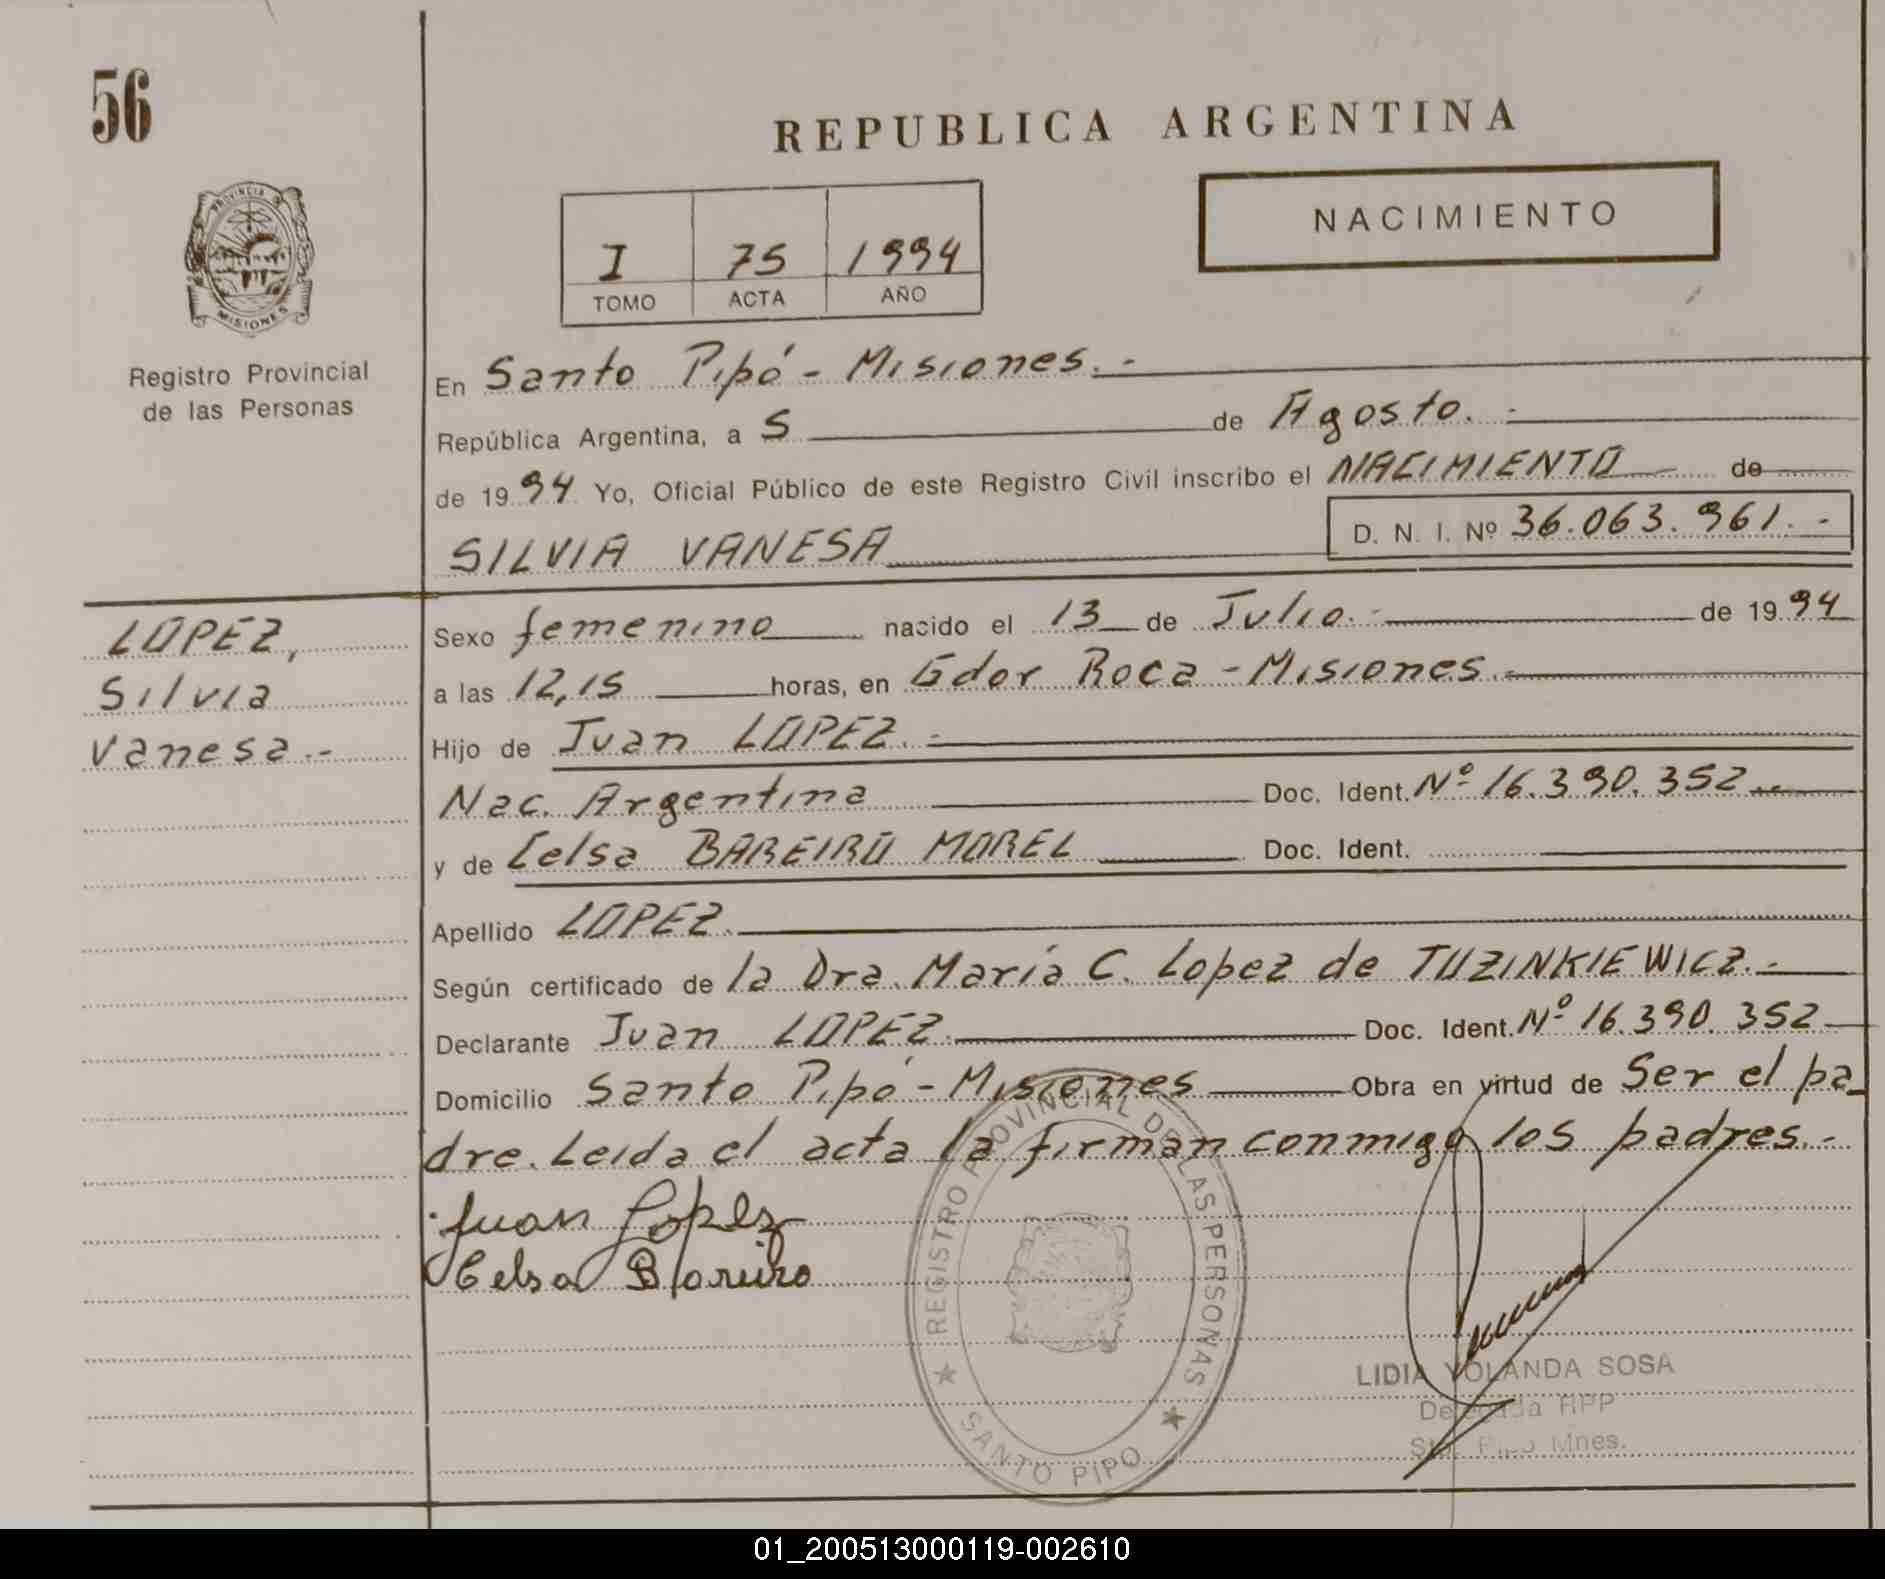 56
REPUBLICA ARGENTINA
PROVINCIA
MISIONES
Registro Provincial
de las Personas
I 75 1994
TOMO ACTA AÑO
NACIMIENTO
En Santo Pipó - Misiones.-
República Argentina, a 5 de Agosto.-
de 1994 Yo, Oficial Público de este Registro Civil inscribo el NACIMIENTO de
SILVIA VANESA D. N. I. Nº 36.063.961.-
LOPEZ,
Silvia
Vanesa.-
Sexo femenino nacido el 13 de Julio.- de 1994
a las 12,15 horas, en Gdor Roca - Misiones.-
Hijo de Juan LOPEZ.-
Nac. Argentina Doc. Ident. Nº 16.390.352.-
y de Celsa BAREIRO MOREL Doc. Ident.
Apellido LOPEZ.
Según certificado de la Dra. María C. Lopez de TUZINKIEWICZ.-
Declarante Juan LOPEZ. Doc. Ident. Nº 16.390.352
Domicilio Santo Pipó - Misiones Obra en virtud de Ser el pa
dre. Leida el acta la firman conmigo los padres.-
Juan Lopez
Celsa Bareiro
REGISTRO PROVINCIAL DE LAS PERSONAS
SANTO PIPO
LIDIA YOLANDA SOSA
Delegada RPP
Sto. Pipó Mnes.
01_200513000119-002610